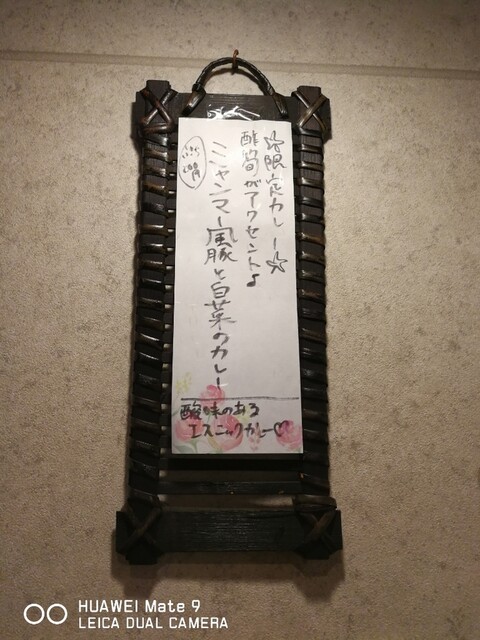 ☆限定カレー☆
酢筍がアクセント♪
ミャンマー風豚と白菜のカレー
酸味のある
エスニックカレー♡
HUAWEI Mate 9
LEICA DUAL CAMERA